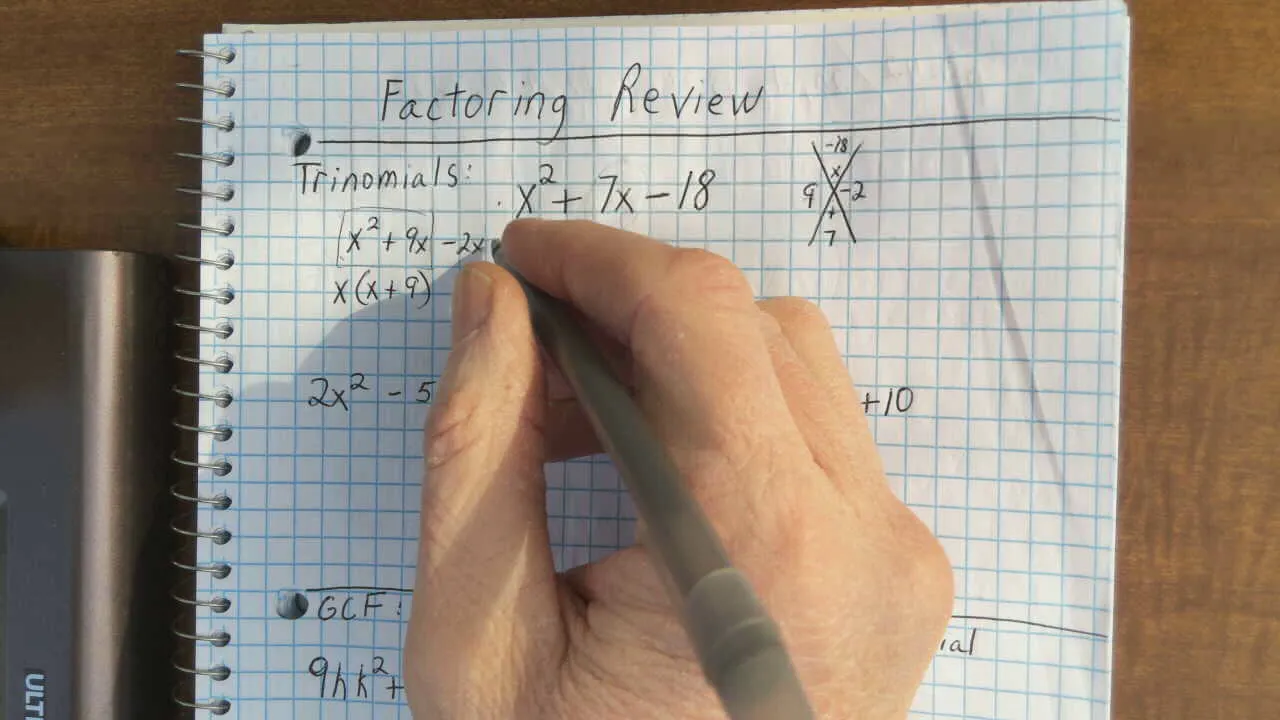 Factoring Review
Trinomials: x² + 7x - 18
-18
x
9 -2
+
7
x² + 9x - 2x
x(x + 9)
2x² - 5
+10
GCF:
ial
9hk² +
ULT